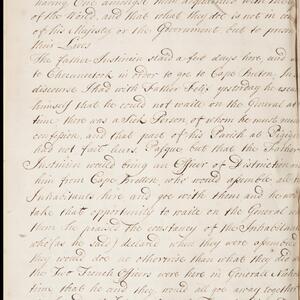 having One amongst them acquainted with the
of the World, and that what they do is not in con
of his Majesty or the Government but to preserve
their Lives
The father Justinien staid a few days here, and
to Checannectock in order to go to Cape Breton. In
discourse I had with Father Felix yesterday he said
himself that he could not waite on the General at
time, there was a Sick Person of whom he must
confession, and that part of his Parish at
had not fait leurs Pasque but that the Father
Justinien would bring an Officer of Distinction
him from Cape Bretton, who would assemble all the
Inhabitants here and goe with them and he wou
take that opportunity to waite on the General
them, he praised the constancy of the Inhabitan
who (as he said) declared when they were assembled
they would doe no otherwise than what they did
the Two French Officers were here in Generall Nichol
time that he and they would all goe away together